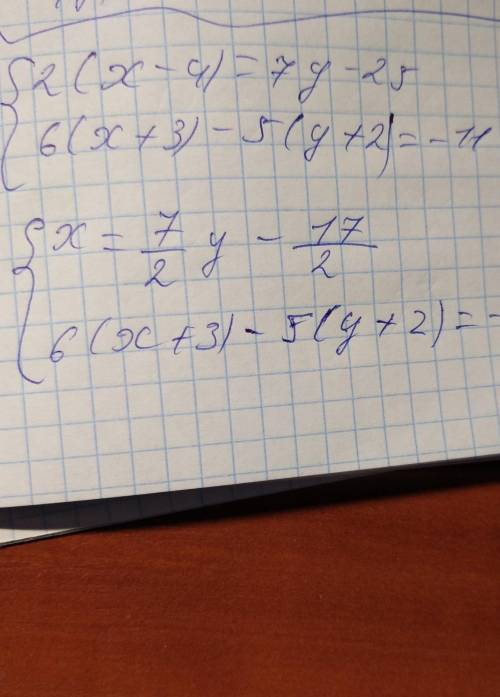 2(x-4)=7y-25
6(x+3)-5(y+2)=-11
x=7/2y-17/2
6(x+3)-5(y+2)=-